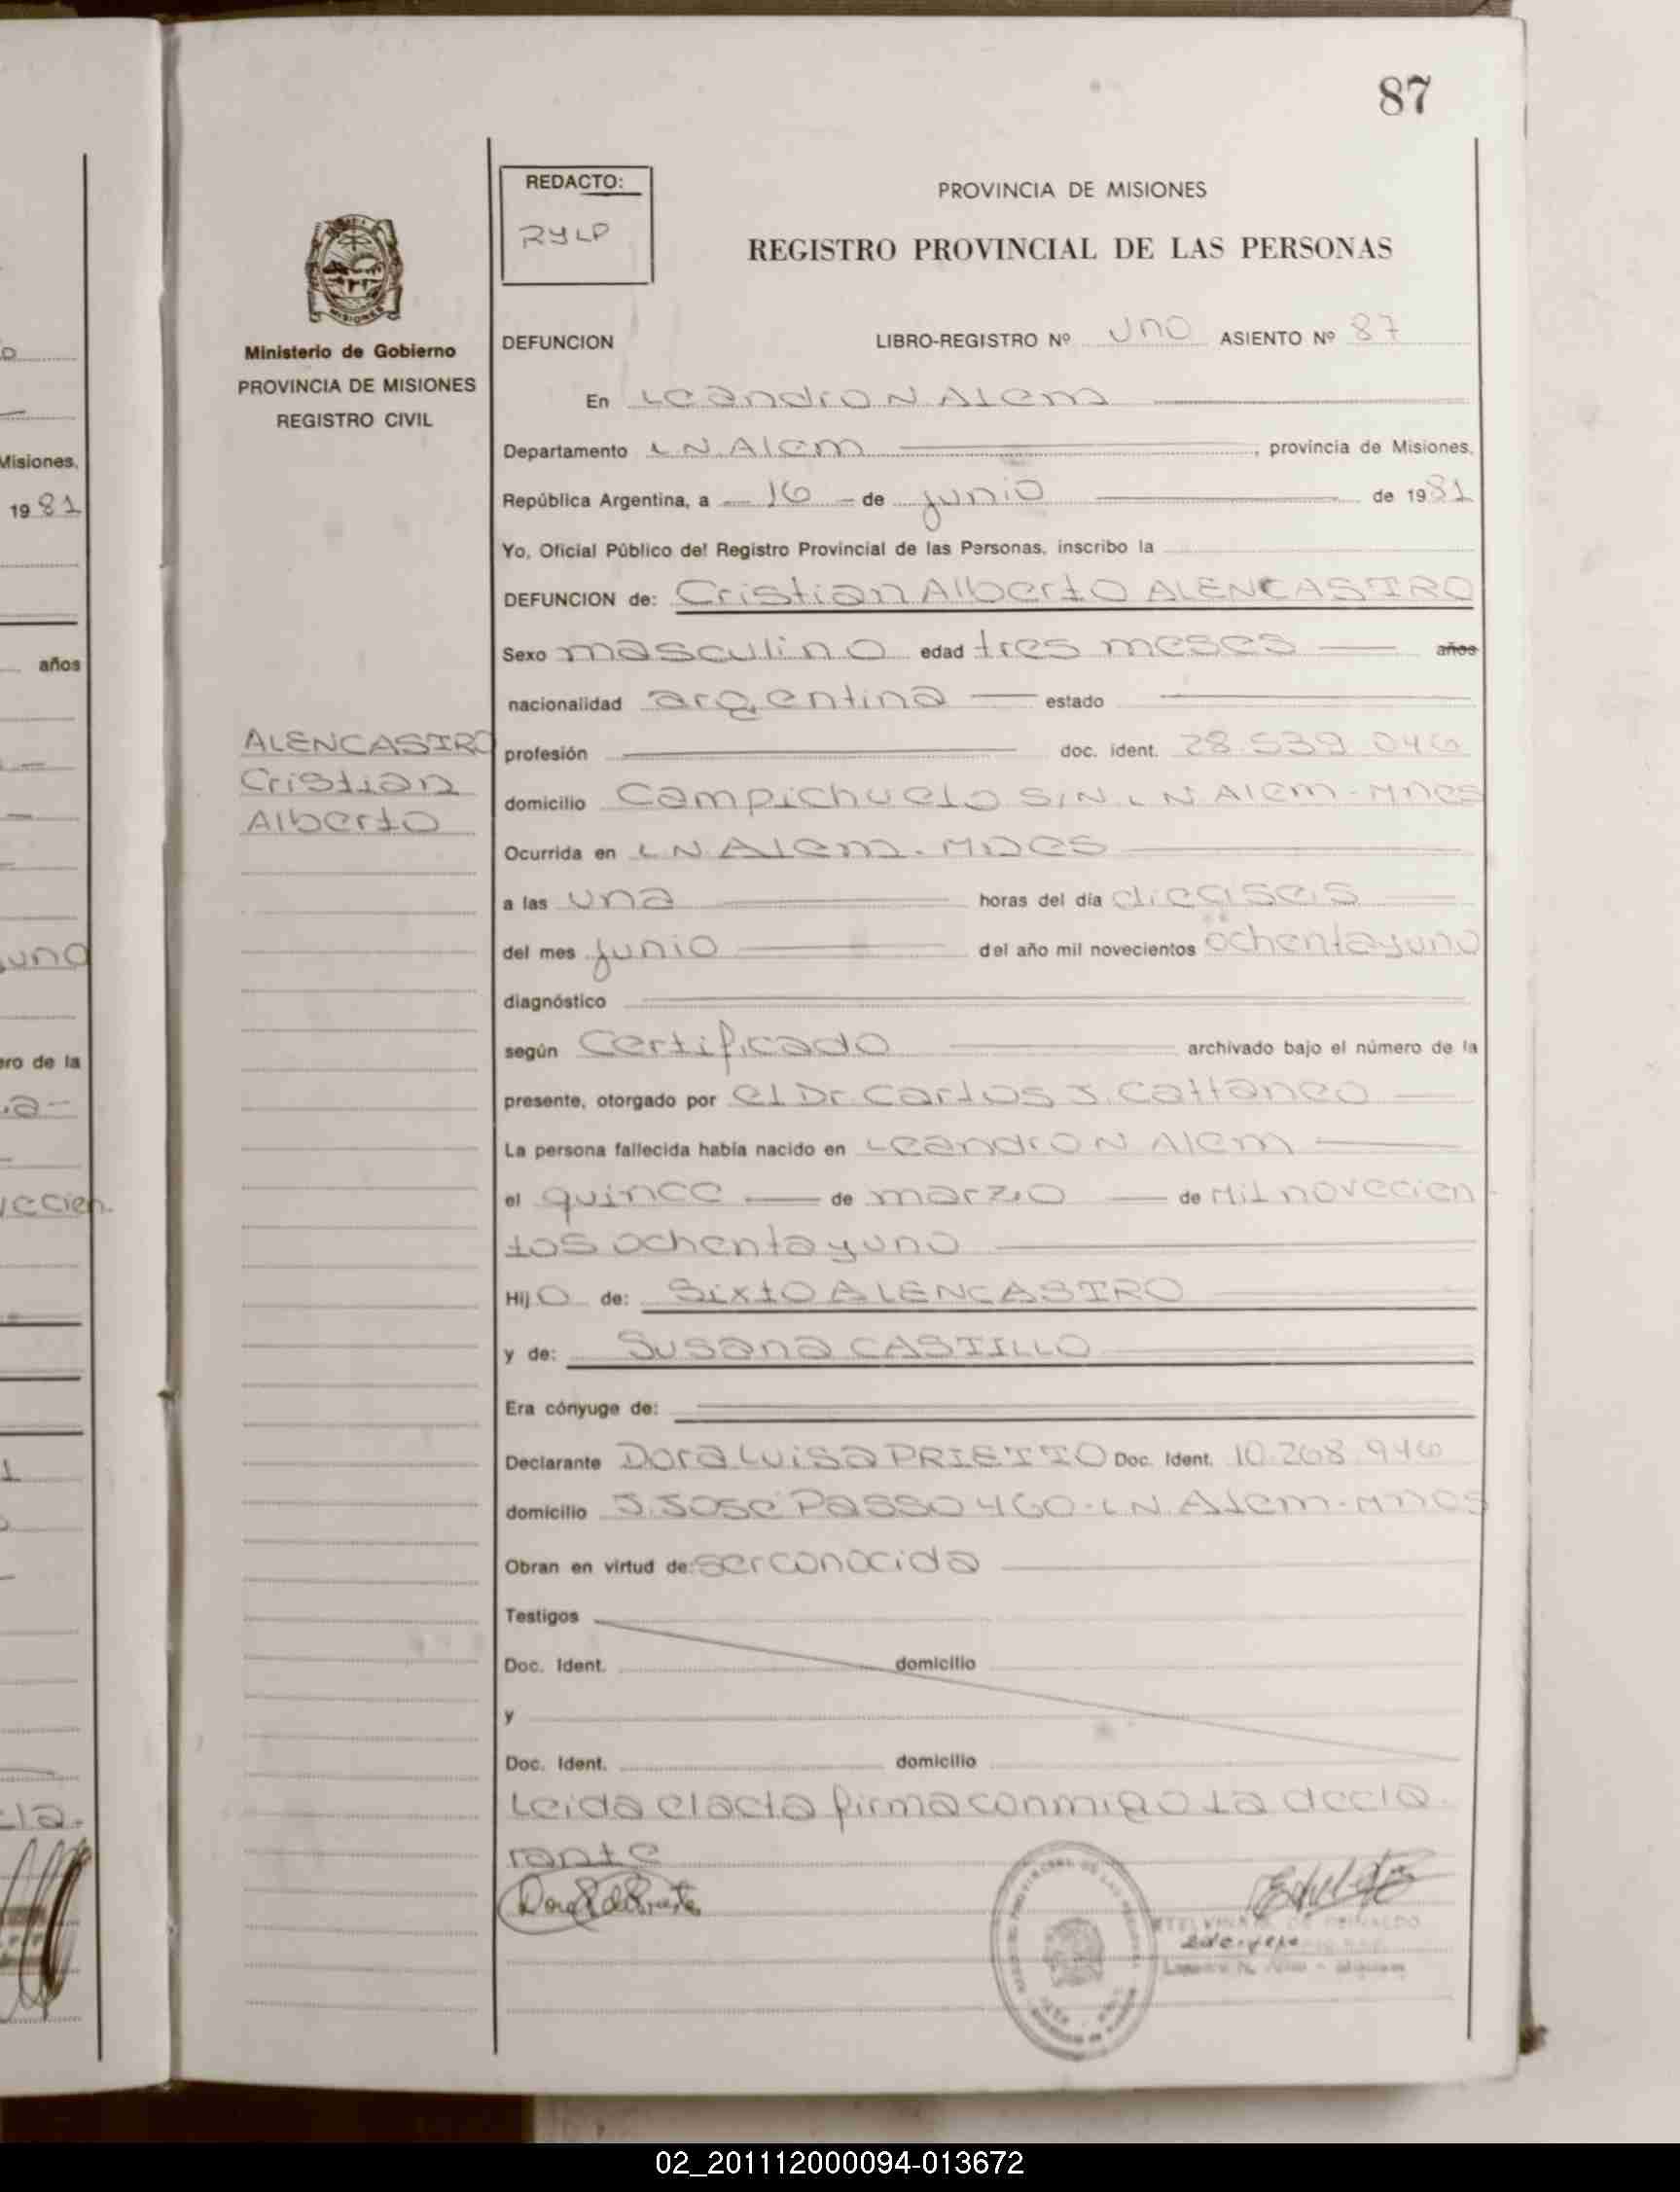 87
REDACTO:
RYLP
PROVINCIA DE MISIONES
REGISTRO PROVINCIAL DE LAS PERSONAS
MISIONES
Ministerio de Gobierno
PROVINCIA DE MISIONES
REGISTRO CIVIL
DEFUNCION LIBRO-REGISTRO Nº uno ASIENTO Nº 87
En Leandro N Alem
Departamento L N. Alem, provincia de Misiones,
República Argentina, a 16 de junio de 1981
Yo, Oficial Público del Registro Provincial de las Personas, inscribo la
DEFUNCION de: Cristian Alberto ALENCASTRO
Sexo masculino edad tres meses años
nacionalidad argentina estado
profesión doc. ident. 28.539.046
domicilio Campichuelo S/N. L N Alem - Mnes
Ocurrida en L N. Alem. Mnes
a las una horas del día dieciseis
del mes junio del año mil novecientos ochenta y uno
diagnóstico
según Certificado archivado bajo el número de la
presente, otorgado por el Dr. Carlos J. Cattaneo
La persona fallecida había nacido en Leandro N Alem
el quince de marzo de Mil novecien
tos ochenta y uno
Hijo de: Sixto ALENCASTRO
y de: Susana CASTILLO
Era cónyuge de:
Declarante Dora Luisa PRIETTO Doc. Ident. 10.268.946
domicilio J. José Passo 460 - L N. Alem - Mnes
Obran en virtud de: ser conocida
Testigos
Doc. Ident. domicilio
y
Doc. Ident. domicilio
Leida el acta firma conmigo la decla-
rante
ALENCASTRO
Cristian
Alberto
Misiones,
1981
años
uno
ero de la
ccien.
cla-
02_201112000094-013672